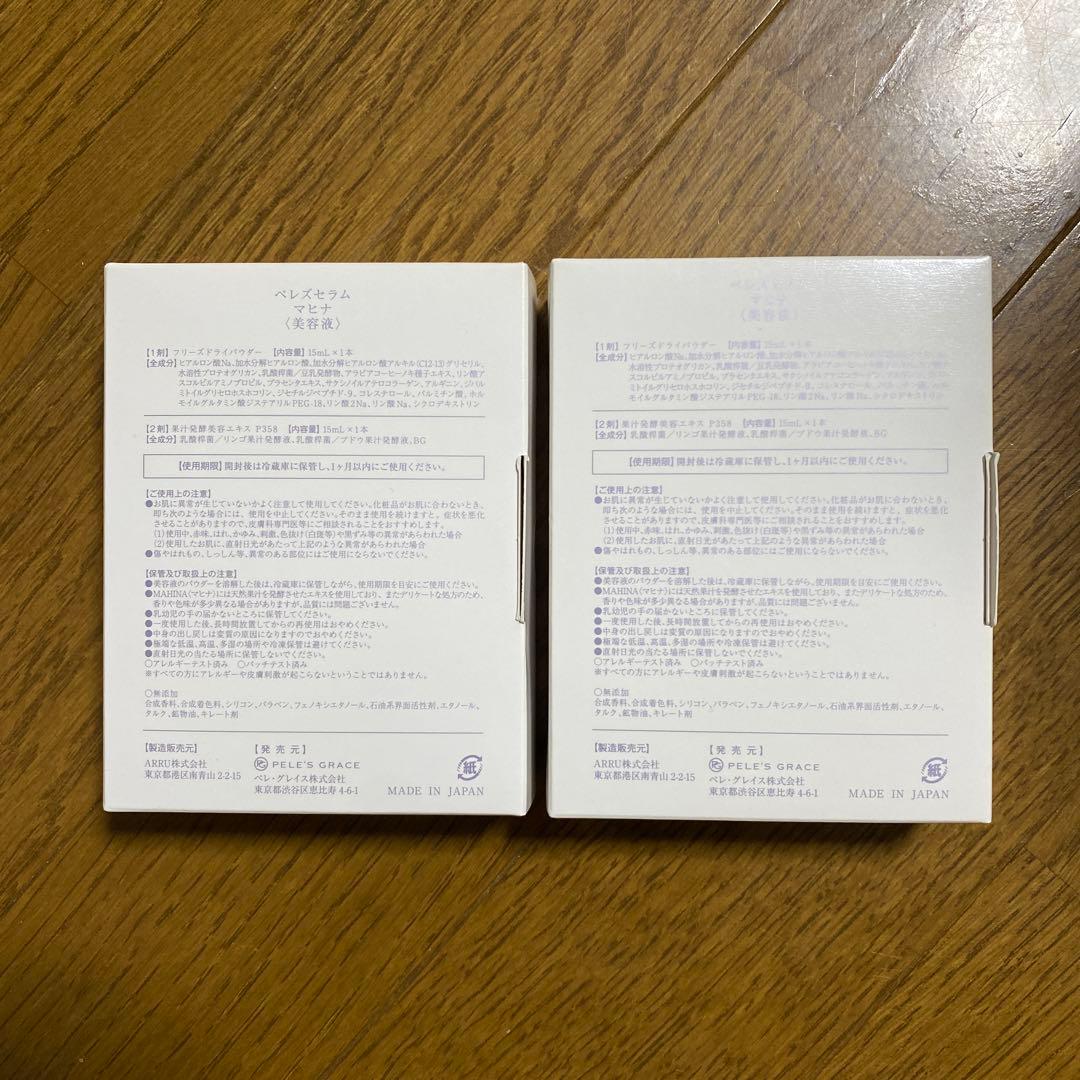 ペレズセラム
マヒナ
〈美容液〉
【1剤】フリーズドライパウダー 【内容量】15mL×1本
【全成分】ヒアルロン酸Na、加水分解ヒアルロン酸、加水分解ヒアルロン酸アルキル(C12-13)グリセリル、
水溶性プロテオグリカン、乳酸桿菌／豆乳発酵物、アラビアコーヒーノキ種子エキス、リン酸ア
スコルビルアミノプロピル、プラセンタエキス、サクシノイルアテロコラーゲン、アルギニン、ジパル
ミトイルグリセロホスホコリン、ジセチルジペプチド-9、コレステロール、パルミチン酸、ホル
モイルグルタミン酸ジステアリルPEG-18、リン酸2Na、リン酸Na、シクロデキストリン
【2剤】果汁発酵美容エキス P358 【内容量】15mL×1本
【全成分】乳酸桿菌／リンゴ果汁発酵液、乳酸桿菌／ブドウ果汁発酵液、BG
【使用期限】開封後は冷蔵庫に保管し、1ヶ月以内にご使用ください。
【ご使用上の注意】
●お肌に異常が生じていないかよく注意して使用してください。化粧品がお肌に合わないとき、
即ち次のような場合には、使用を中止してください。そのまま使用を続けますと、症状を悪化
させることがありますので、皮膚科専門医等にご相談されることをおすすめします。
(1)使用中、赤味、はれ、かゆみ、刺激、色抜け(白斑等)や黒ずみ等の異常があらわれた場合
(2)使用したお肌に、直射日光があたって上記のような異常があらわれた場合
●傷やはれもの、しっしん等、異常のある部位にはご使用にならないでください。
【保管及び取扱上の注意】
●美容液のパウダーを溶解した後は、冷蔵庫に保管しながら、使用期限を目安にご使用ください。
●MAHINA〈マヒナ〉には天然果汁を発酵させたエキスを使用しており、またデリケートな処方のため、
香りや色味が多少異なる場合がありますが、品質には問題ございません。
●乳幼児の手の届かないところに保管してください。
●一度使用した後、長時間放置してからの再使用はおやめください。
●中身の出し戻しは変質の原因になりますのでおやめください。
●極端な低温、高温、多湿の場所や冷凍保管は避けてください。
●直射日光の当たる場所に保管しないでください。
○アレルギーテスト済み ○パッチテスト済み
※すべての方にアレルギーや皮膚刺激が起こらないということではありません。
○無添加
合成香料、合成着色料、シリコン、パラベン、フェノキシエタノール、石油系界面活性剤、エタノール、
タルク、鉱物油、キレート剤
【製造販売元】
ARRU株式会社
東京都港区南青山 2-2-15
【発売元】
PELE'S GRACE
ペレ・グレイス株式会社
東京都渋谷区恵比寿 4-6-1
紙
MADE IN JAPAN
ペレズセラム
マヒナ
〈美容液〉
【1剤】フリーズドライパウダー 【内容量】15mL×1本
【全成分】ヒアルロン酸Na、加水分解ヒアルロン酸、加水分解ヒアルロン酸アルキル(C12-13)グリセリル、
水溶性プロテオグリカン、乳酸桿菌／豆乳発酵物、アラビアコーヒーノキ種子エキス、リン酸ア
スコルビルアミノプロピル、プラセンタエキス、サクシノイルアテロコラーゲン、アルギニン、ジパル
ミトイルグリセロホスホコリン、ジセチルジペプチド-9、コレステロール、パルミチン酸、ホル
モイルグルタミン酸ジステアリルPEG-18、リン酸2Na、リン酸Na、シクロデキストリン
【2剤】果汁発酵美容エキス P358 【内容量】15mL×1本
【全成分】乳酸桿菌／リンゴ果汁発酵液、乳酸桿菌／ブドウ果汁発酵液、BG
【使用期限】開封後は冷蔵庫に保管し、1ヶ月以内にご使用ください。
【ご使用上の注意】
●お肌に異常が生じていないかよく注意して使用してください。化粧品がお肌に合わないとき、
即ち次のような場合には、使用を中止してください。そのまま使用を続けますと、症状を悪化
させることがありますので、皮膚科専門医等にご相談されることをおすすめします。
(1)使用中、赤味、はれ、かゆみ、刺激、色抜け(白斑等)や黒ずみ等の異常があらわれた場合
(2)使用したお肌に、直射日光があたって上記のような異常があらわれた場合
●傷やはれもの、しっしん等、異常のある部位にはご使用にならないでください。
【保管及び取扱上の注意】
●美容液のパウダーを溶解した後は、冷蔵庫に保管しながら、使用期限を目安にご使用ください。
●MAHINA〈マヒナ〉には天然果汁を発酵させたエキスを使用しており、またデリケートな処方のため、
香りや色味が多少異なる場合がありますが、品質には問題ございません。
●乳幼児の手の届かないところに保管してください。
●一度使用した後、長時間放置してからの再使用はおやめください。
●中身の出し戻しは変質の原因になりますのでおやめください。
●極端な低温、高温、多湿の場所や冷凍保管は避けてください。
●直射日光の当たる場所に保管しないでください。
○アレルギーテスト済み ○パッチテスト済み
※すべての方にアレルギーや皮膚刺激が起こらないということではありません。
○無添加
合成香料、合成着色料、シリコン、パラベン、フェノキシエタノール、石油系界面活性剤、エタノール、
タルク、鉱物油、キレート剤
【製造販売元】
ARRU株式会社
東京都港区南青山 2-2-15
【発売元】
PELE'S GRACE
ペレ・グレイス株式会社
東京都渋谷区恵比寿 4-6-1
紙
MADE IN JAPAN